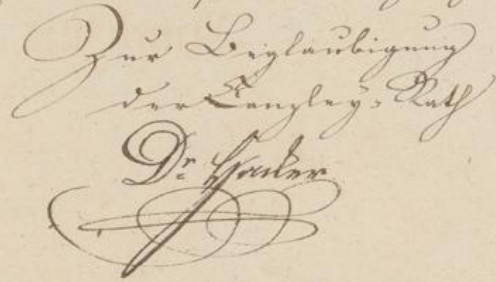 Zur Beglaubigung
der Canzley-Rath
Dr.